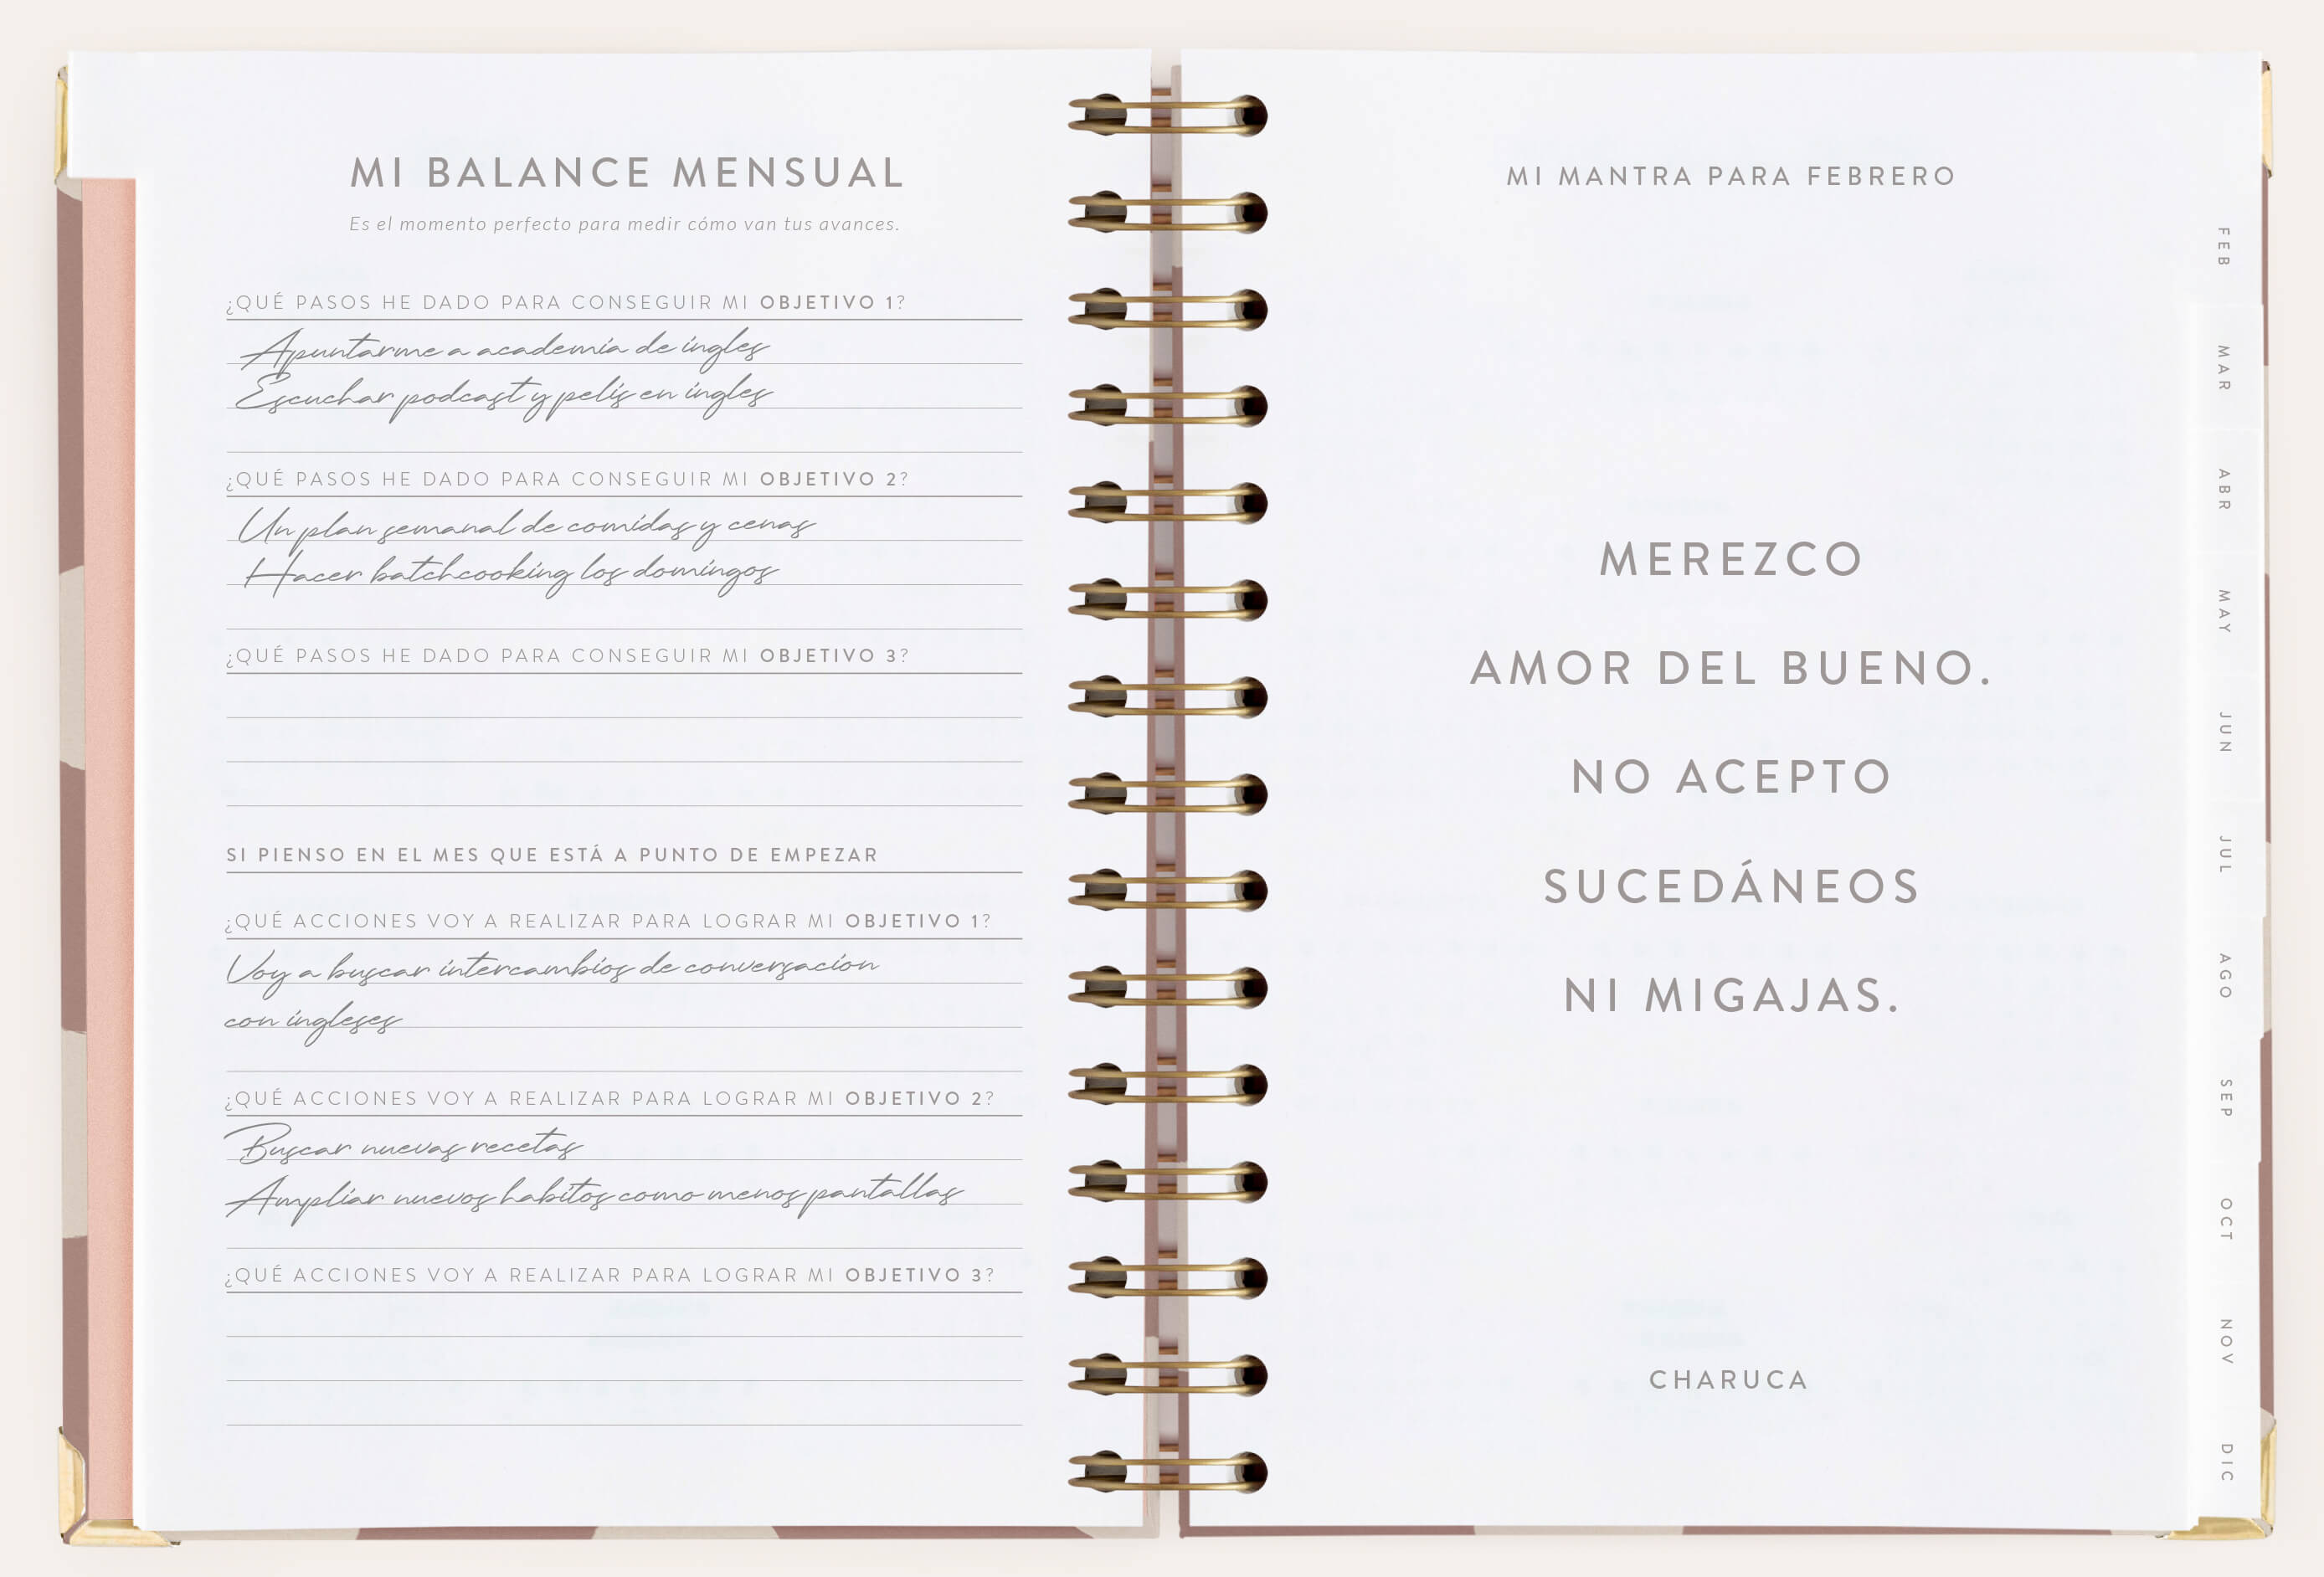 MI BALANCE MENSUAL
Es el momento perfecto para medir cómo van tus avances.
¿QUÉ PASOS HE DADO PARA CONSEGUIR MI OBJETIVO 1?
Apuntarme a academia de ingles
Escuchar podcast y pelis en ingles
¿QUÉ PASOS HE DADO PARA CONSEGUIR MI OBJETIVO 2?
Un plan semanal de comidas y cenas
Hacer batchcooking los domingos
¿QUÉ PASOS HE DADO PARA CONSEGUIR MI OBJETIVO 3?
SI PIENSO EN EL MES QUE ESTÁ A PUNTO DE EMPEZAR
¿QUÉ ACCIONES VOY A REALIZAR PARA LOGRAR MI OBJETIVO 1?
Voy a buscar intercambios de conversacion
con ingleses
¿QUÉ ACCIONES VOY A REALIZAR PARA LOGRAR MI OBJETIVO 2?
Buscar nuevas recetas
Ampliar nuevos habitos como menos pantallas
¿QUÉ ACCIONES VOY A REALIZAR PARA LOGRAR MI OBJETIVO 3?
MI MANTRA PARA FEBRERO
MEREZCO
AMOR DEL BUENO.
NO ACEPTO
SUCEDÁNEOS
NI MIGAJAS.
CHARUCA
FEB
MAR
ABR
MAY
JUN
JUL
AGO
SEP
OCT
NOV
DIC